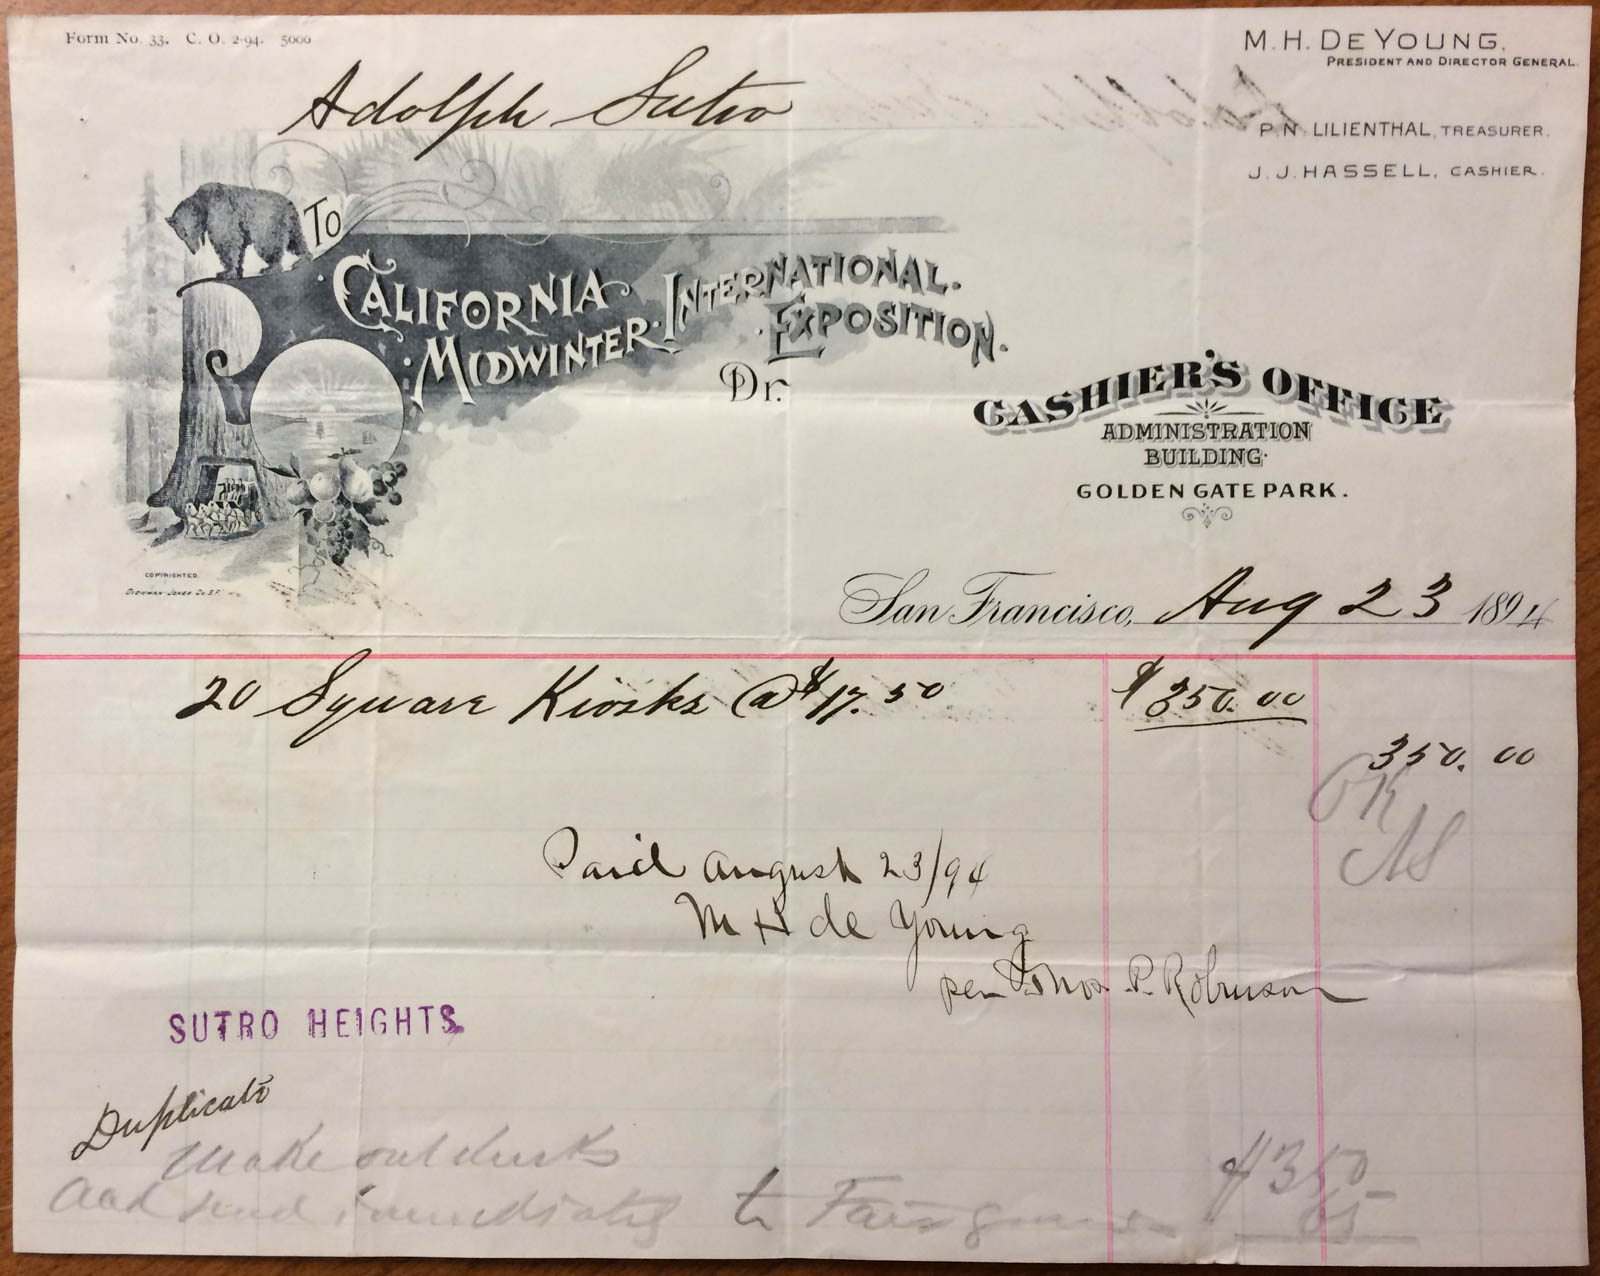 Form No. 33. C. O. 2-94. 5000
M. H. DE YOUNG,
PRESIDENT AND DIRECTOR GENERAL.
Adolph Sutro
P. N. LILIENTHAL, TREASURER.
J. J. HASSELL, CASHIER.
TO
CALIFORNIA
MIDWINTER · INTERNATIONAL.
· EXPOSITION.
Dr.
CASHIER'S OFFICE
ADMINISTRATION
BUILDING.
GOLDEN GATE PARK.
COPYRIGHTED.
DICKMAN-JONES CO. S.F.
San Francisco, Aug 23 1894
20 Square Kiosks @ $17.50 $350.00
350.00
OK
AS
Paid August 23/94
M H de Young
per Thos. P. Robinson
SUTRO HEIGHTS.
Duplicate
Make out
and send immediately to Fair grounds
$350